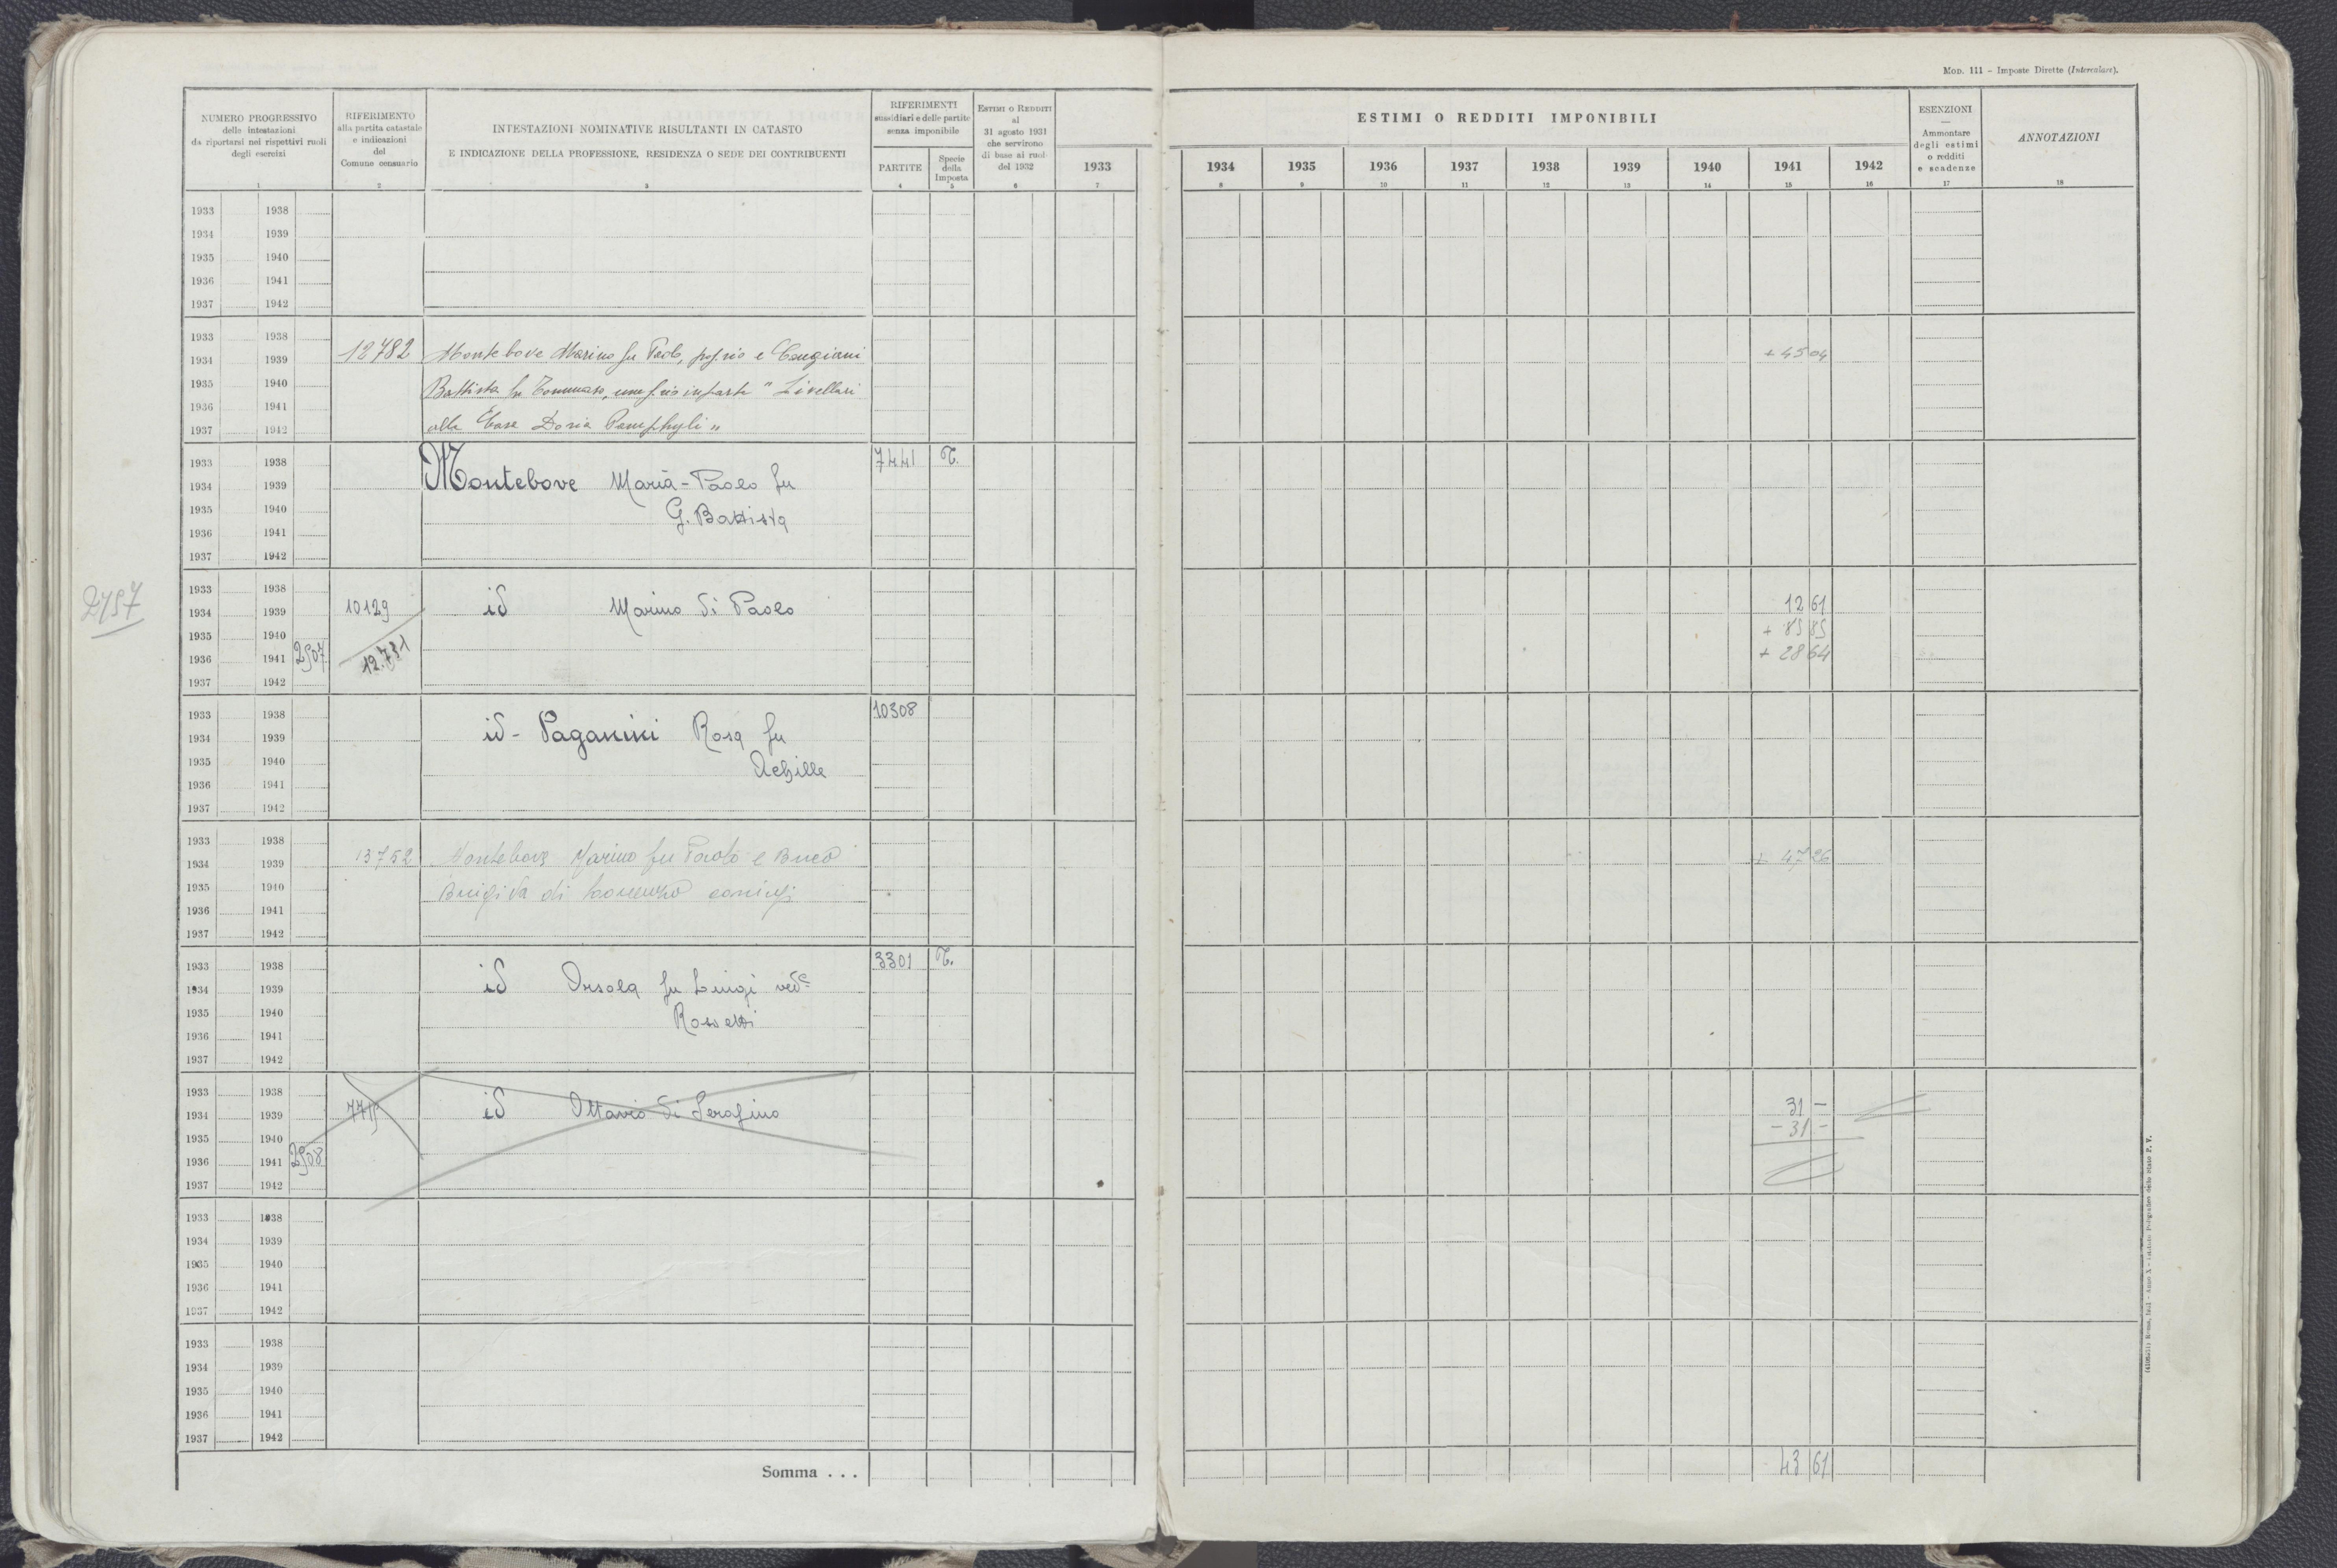 MOD. 111 - Imposte Dirette (Intercalare).
NUMERO PROGRESSIVO
delle intestazioni
da riportarsi nei rispettivi ruoli
degli esercizi
1
RIFERIMENTO
alla partita catastale
e indicazioni
del
Comune censuario
2
INTESTAZIONI NOMINATIVE RISULTANTI IN CATASTO
E INDICAZIONE DELLA PROFESSIONE, RESIDENZA O SEDE DEI CONTRIBUENTI
3
RIFERIMENTI
sussidiari e delle partite
senza imponibile
PARTITE
4
Specie
della
Imposta
5
ESTIMI O REDDITI
al
31 agosto 1931
che servirono
di base ai ruoli
del 1932
6
1933
7
ESTIMI O REDDITI IMPONIBILI
1934 1935 1936 1937 1938 1939 1940 1941 1942
8 9 10 11 12 13 14 15 16
ESENZIONI
Ammontare
degli estimi
o redditi
e scadenze
17
ANNOTAZIONI
18
1933 1938
1934 1939
1935 1940
1936 1941
1937 1942
1933 1938
1934 1939 12782 Montebove Marino fu Paolo, e + 45 04
1935 1940 Battista fu Tommaso, in parte " Livellari
1936 1941
1937 1942 alla Casa Doria Pamphyli "
1933 1938 7441 T.
1934 1939 Montebove Maria-Paolo fu
1935 1940 G. Battista
1936 1941
1937 1942
1933 1938
1934 1939 10129 id Marino di Paolo 12 61
1935 1940 + 85 85
1936 1941 2507 12.731 + 28 64
1937 1942
2757
1933 1938 10308
1934 1939 id - Paganini Rosa fu
1935 1940 Achille
1936 1941
1937 1942
1933 1938
1934 1939 13752 Montebove Marino fu Paolo e + 47 26
1935 1940 Brigida di Lorenzo coniugi
1936 1941
1937 1942
1933 1938 3301 T.
1934 1939 id Orsola fu Luigi ved
1935 1940 Rossetti
1936 1941
1937 1942
1933 1938
1934 1939 id Ottavio di Serafino 31 -
1935 1940 - 31 -
1936 1941 2508
1937 1942
1933 1938
1934 1939
1935 1940
1936 1941
1937 1942
1933 1938
1934 1939
1935 1940
1936 1941
1937 1942
Somma . . . 43 61